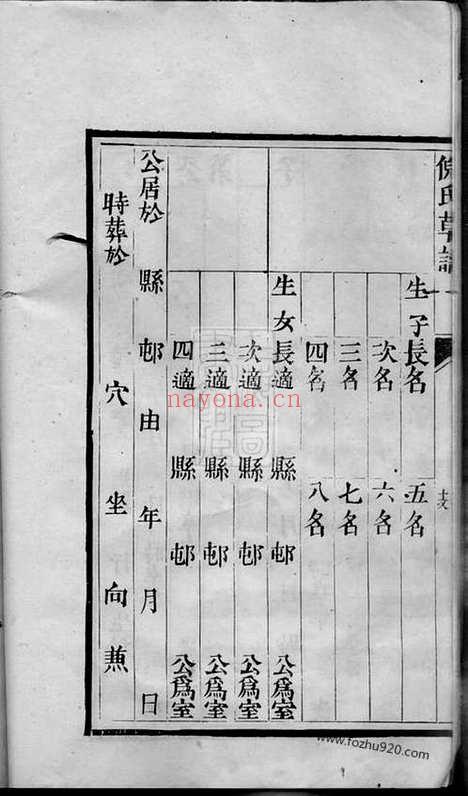 倪氏草譜
生子長名 五名
次名 六名
三名 七名
四名 八名
生女長適 縣 邨 公爲室
次適 縣 邨 公爲室
三適 縣 邨 公爲室
四適 縣 邨 公爲室
公居於 縣 邨由 年 月 日
時葬於 穴 坐 向 兼
nayona.cn
www.fozhu920.com